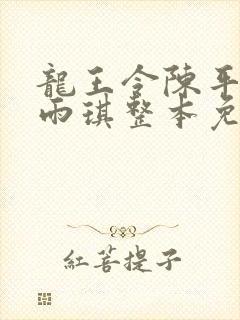 龍王令陳平
雨琪整本免
紅菩提子